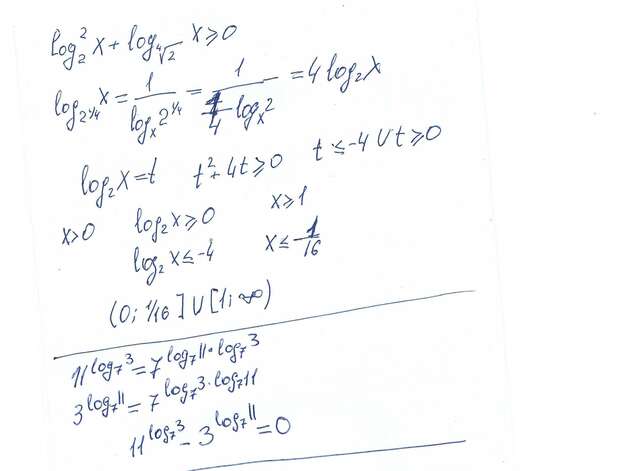 log₂²x + log_{⁴√2} x ≥ 0
log_{2^{1/4}} x = 1/(log_x 2^{1/4}) = 1/(1/4 log_x 2) = 4 log₂x
log₂x = t   t² + 4t ≥ 0   t ≤ -4 ∪ t ≥ 0
x>0   log₂x ≥ 0   x ≥ 1
log₂x ≤ -4   x ≤ 1/16
(0; 1/16] ∪ [1; ∞)
11^{log₇3} = 7^{log₇11·log₇3}
3^{log₇11} = 7^{log₇3·log₇11}
11^{log₇3} - 3^{log₇11} = 0